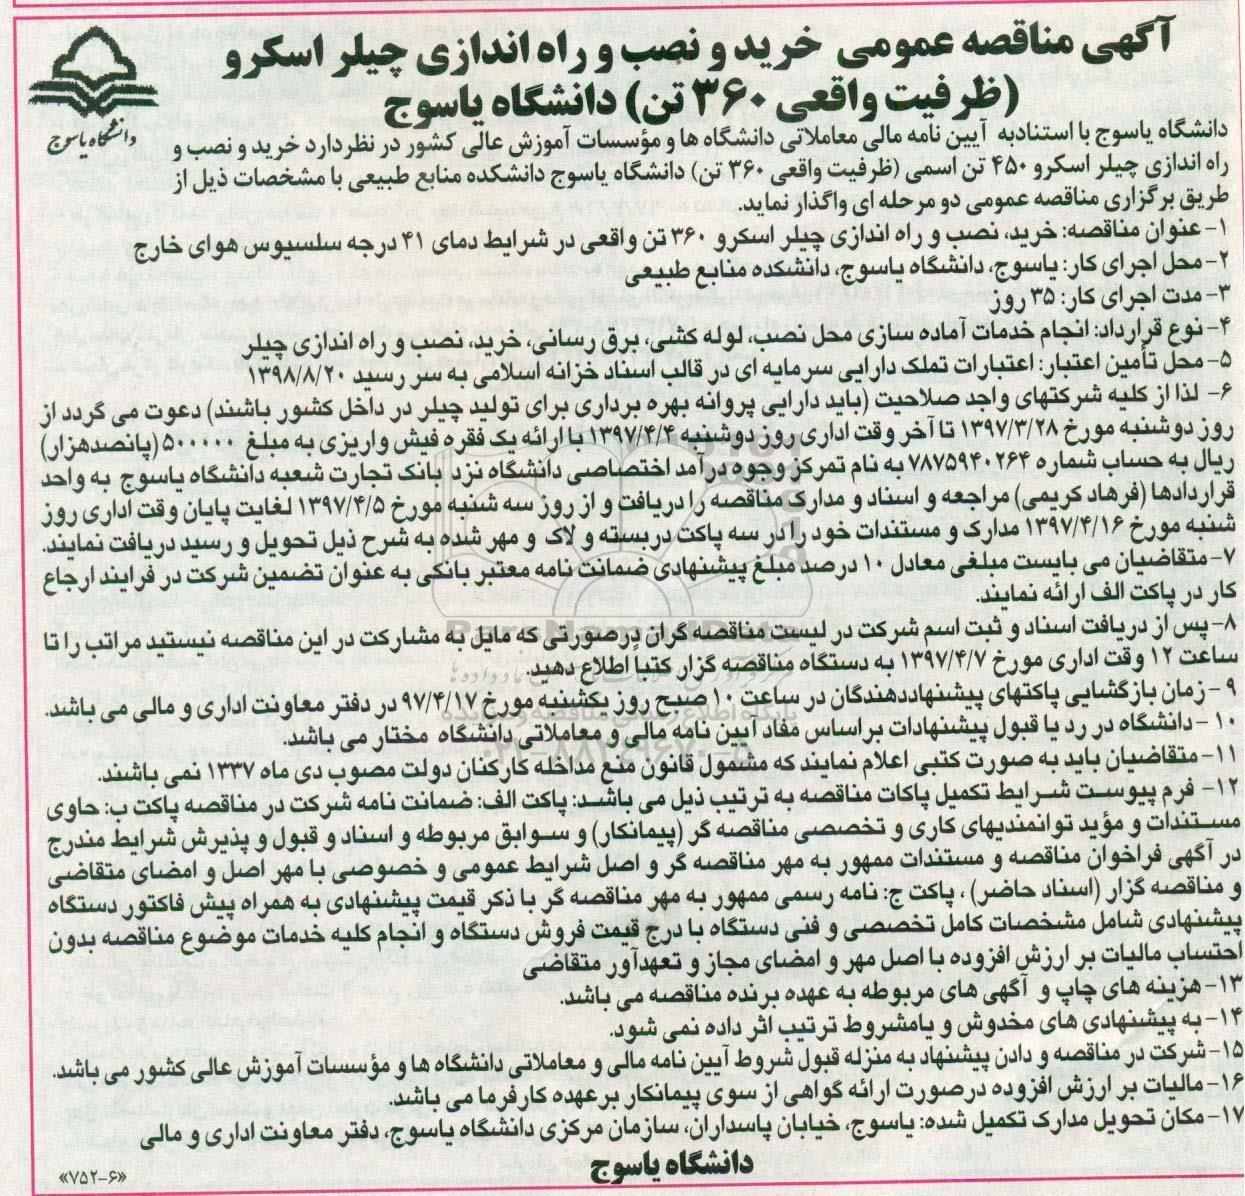 آگهی مناقصه عمومی خرید و نصب و راه اندازی چیلر اسکرو
(ظرفیت واقعی ۳۶۰ تن) دانشگاه یاسوج
دانشگاه یاسوج
دانشگاه یاسوج با استنادبه آیین نامه مالی معاملاتی دانشگاه ها و مؤسسات آموزش عالی کشور در نظردارد خرید و نصب و
راه اندازی چیلر اسکرو ۴۵۰ تن اسمی (ظرفیت واقعی ۳۶۰ تن) دانشگاه یاسوج دانشکده منابع طبیعی با مشخصات ذیل از
طریق برگزاری مناقصه عمومی دو مرحله ای واگذار نماید.
۱- عنوان مناقصه: خرید، نصب و راه اندازی چیلر اسکرو ۳۶۰ تن واقعی در شرایط دمای ۴۱ درجه سلسیوس هوای خارج
۲- محل اجرای کار: یاسوج، دانشگاه یاسوج، دانشکده منابع طبیعی
۳- مدت اجرای کار: ۳۵ روز
۴- نوع قرارداد: انجام خدمات آماده سازی محل نصب، لوله کشی، برق رسانی، خرید، نصب و راه اندازی چیلر
۵- محل تأمین اعتبار: اعتبارات تملک دارایی سرمایه ای در قالب اسناد خزانه اسلامی به سر رسید ۱۳۹۸/۸/۲۰
۶- لذا از کلیه شرکتهای واجد صلاحیت (باید دارایی پروانه بهره برداری برای تولید چیلر در داخل کشور باشند) دعوت می گردد از
روز دوشنبه مورخ ۱۳۹۷/۳/۲۸ تا آخر وقت اداری روز دوشنبه ۱۳۹۷/۴/۴ با ارائه یک فقره فیش واریزی به مبلغ ۵۰۰۰۰۰ (پانصدهزار)
ریال به حساب شماره ۷۸۷۵۹۴۰۲۶۴ به نام تمرکز وجوه درآمد اختصاصی دانشگاه نزد بانک تجارت شعبه دانشگاه یاسوج به واحد
قراردادها (فرهاد کریمی) مراجعه و اسناد و مدارک مناقصه را دریافت و از روز سه شنبه مورخ ۱۳۹۷/۴/۵ لغایت پایان وقت اداری روز
شنبه مورخ ۱۳۹۷/۴/۱۶ مدارک و مستندات خود را در سه پاکت دربسته و لاک و مهر شده به شرح ذیل تحویل و رسید دریافت نمایند.
۷- متقاضیان می بایست مبلغی معادل ۱۰ درصد مبلغ پیشنهادی ضمانت نامه معتبر بانکی به عنوان تضمین شرکت در فرایند ارجاع
کار در پاکت الف ارائه نمایند.
۸- پس از دریافت اسناد و ثبت اسم شرکت در لیست مناقصه گران درصورتی که مایل به مشارکت در این مناقصه نیستید مراتب را تا
ساعت ۱۲ وقت اداری مورخ ۱۳۹۷/۴/۷ به دستگاه مناقصه گزار کتبا اطلاع دهید.
۹- زمان بازگشایی پاکتهای پیشنهاددهندگان در ساعت ۱۰ صبح روز یکشنبه مورخ ۹۷/۴/۱۷ در دفتر معاونت اداری و مالی می باشد.
۱۰- دانشگاه در رد یا قبول پیشنهادات براساس مفاد آیین نامه مالی و معاملاتی دانشگاه مختار می باشد.
۱۱- متقاضیان باید به صورت کتبی اعلام نمایند که مشمول قانون منع مداخله کارکنان دولت مصوب دی ماه ۱۳۳۷ نمی باشند.
۱۲- فرم پیوست شرایط تکمیل پاکات مناقصه به ترتیب ذیل می باشد: پاکت الف: ضمانت نامه شرکت در مناقصه پاکت ب: حاوی
مستندات و مؤید توانمندیهای کاری و تخصصی مناقصه گر (پیمانکار) و سوابق مربوطه و اسناد و قبول و پذیرش شرایط مندرج
در آگهی فراخوان مناقصه و مستندات ممهور به مهر مناقصه گر و اصل شرایط عمومی و خصوصی با مهر اصل و امضای متقاضی
و مناقصه گزار (اسناد حاضر) ، پاکت ج: نامه رسمی ممهور به مهر مناقصه گر با ذکر قیمت پیشنهادی به همراه پیش فاکتور دستگاه
پیشنهادی شامل مشخصات کامل تخصصی و فنی دستگاه با درج قیمت فروش دستگاه و انجام کلیه خدمات موضوع مناقصه بدون
احتساب مالیات بر ارزش افزوده با اصل مهر و امضای مجاز و تعهدآور متقاضی
۱۳- هزینه های چاپ و آگهی های مربوطه به عهده برنده مناقصه می باشد.
۱۴- به پیشنهادی های مخدوش و یامشروط ترتیب اثر داده نمی شود.
۱۵- شرکت در مناقصه و دادن پیشنهاد به منزله قبول شروط آیین نامه مالی و معاملاتی دانشگاه ها و مؤسسات آموزش عالی کشور می باشد.
۱۶- مالیات بر ارزش افزوده درصورت ارائه گواهی از سوی پیمانکار برعهده کارفرما می باشد.
۱۷- مکان تحویل مدارک تکمیل شده: یاسوج، خیابان پاسداران، سازمان مرکزی دانشگاه یاسوج، دفتر معاونت اداری و مالی
دانشگاه یاسوج
«۷۵۲-۶»
ParsNamadData
پایگاه اطلاع رسانی مناقصه و مزایده
۰۲۱-۸۸۳۴۹۶۷۰-۵